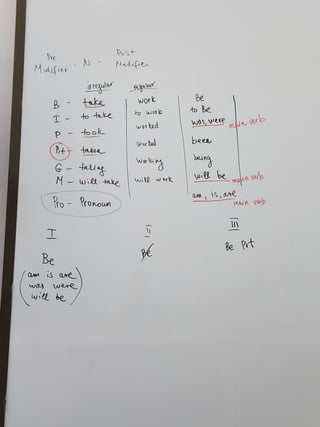 Pre Post
Modifier - N - Modifier
irregular regular
B - take work Be
I - to take to work to Be
P - took worked was, were main verb
Pt - taken worked been
G - taking working being
M - will take will work will be main verb
Pro - Pronoun am, is, are main verb
I II III
Be Be Be Pvt
(am is are
was were
will be)